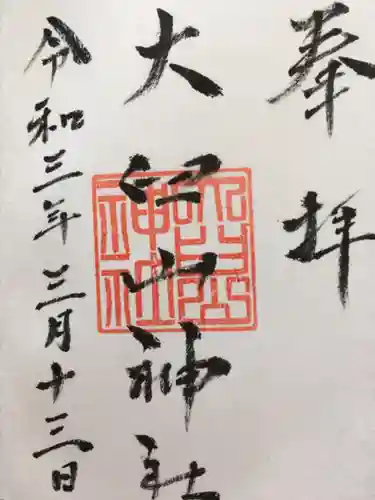 奉拝
大山神社
令和三年三月十三日
神社